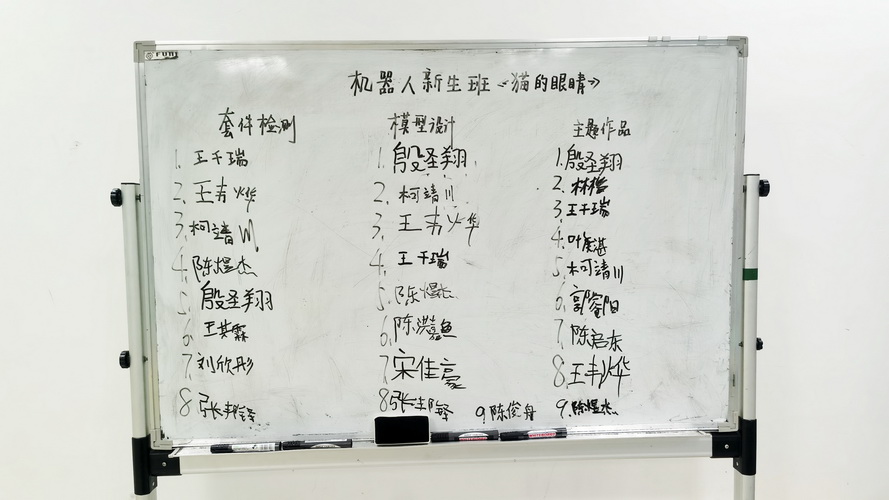 机器人新生班《猫的眼睛》
套件检测
1. 王千瑞
2. 王韦烨
3. 柯靖川
4. 陈煜杰
5. 殷圣翔
6. 王其霖
7. 刘欣彤
8 张邦铎
模型设计
1. 殷圣翔
2. 柯靖川
3. 王韦烨
4. 王千瑞
5. 陈煜杰
6. 陈淇
7 宋佳豪
8 张邦铎
9 陈俊舟
主题作品
1. 殷圣翔
2. 林哲
3. 王千瑞
4. 叶
5. 柯靖川
6. 郭
7. 陈启东
8. 王韦烨
9. 陈煜杰